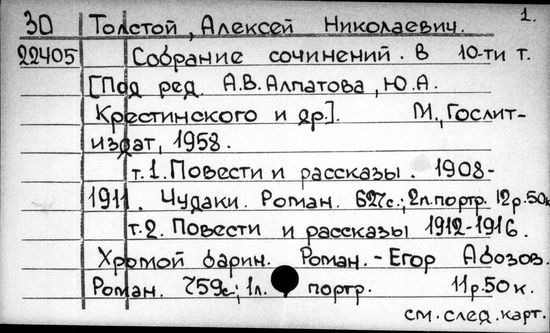 30 Толстой, Алексей Николаевич. 1.
22405 Собрание сочинений. В 10-ти т.
[Под ред. А.В.Алпатова, Ю.А.
Крестинского и др.]. М., Гослит-
издат, 1958.
т.1. Повести и рассказы. 1908-
1911. Чудаки. Роман. 627с.; 2л.портр. 12р.50к
т.2. Повести и рассказы 1912-1916.
Хромой барин. Роман. - Егор Абозов.
Роман. 759с.; 1л. портр. 11р.50к.
см.след.карт.